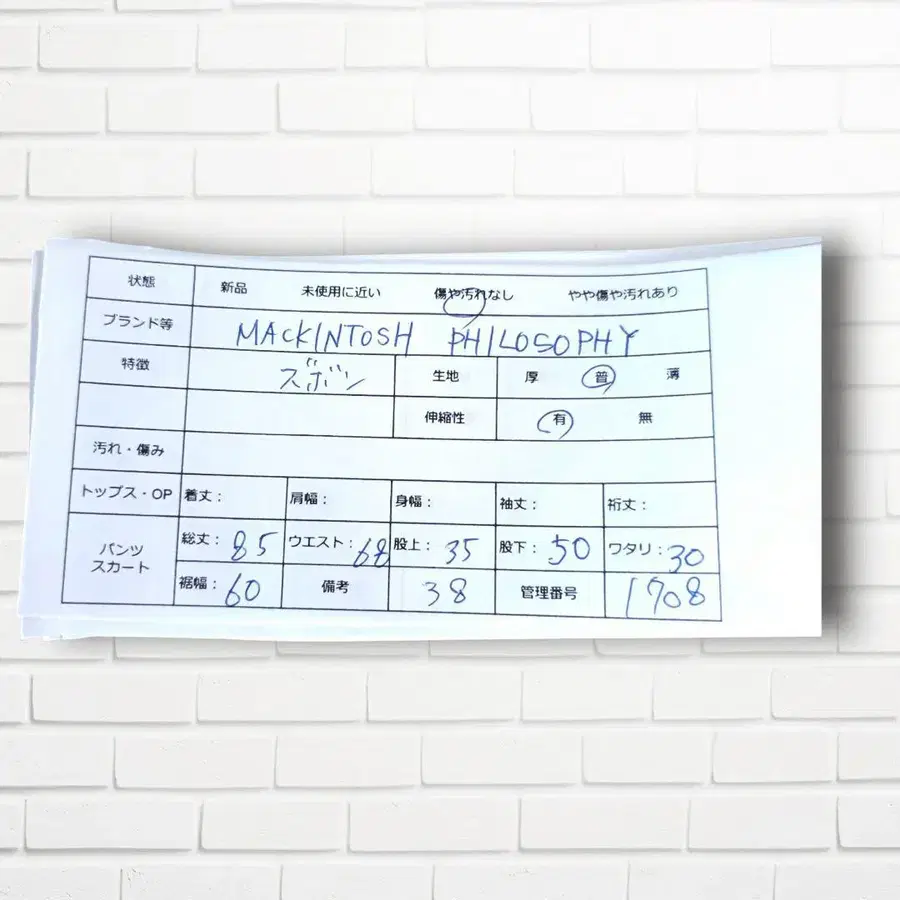 状態 新品 未使用に近い 傷や汚れなし やや傷や汚れあり
ブランド等 MACKINTOSH PHILOSOPHY
特徴 ズボン 生地 厚 普 薄
伸縮性 有 無
汚れ・傷み
トップス・OP 着丈： 肩幅： 身幅： 袖丈： 裄丈：
パンツ スカート 総丈：85 ウエスト：68 股上：35 股下：50 ワタリ：30
裾幅：60 備考 38 管理番号 1708